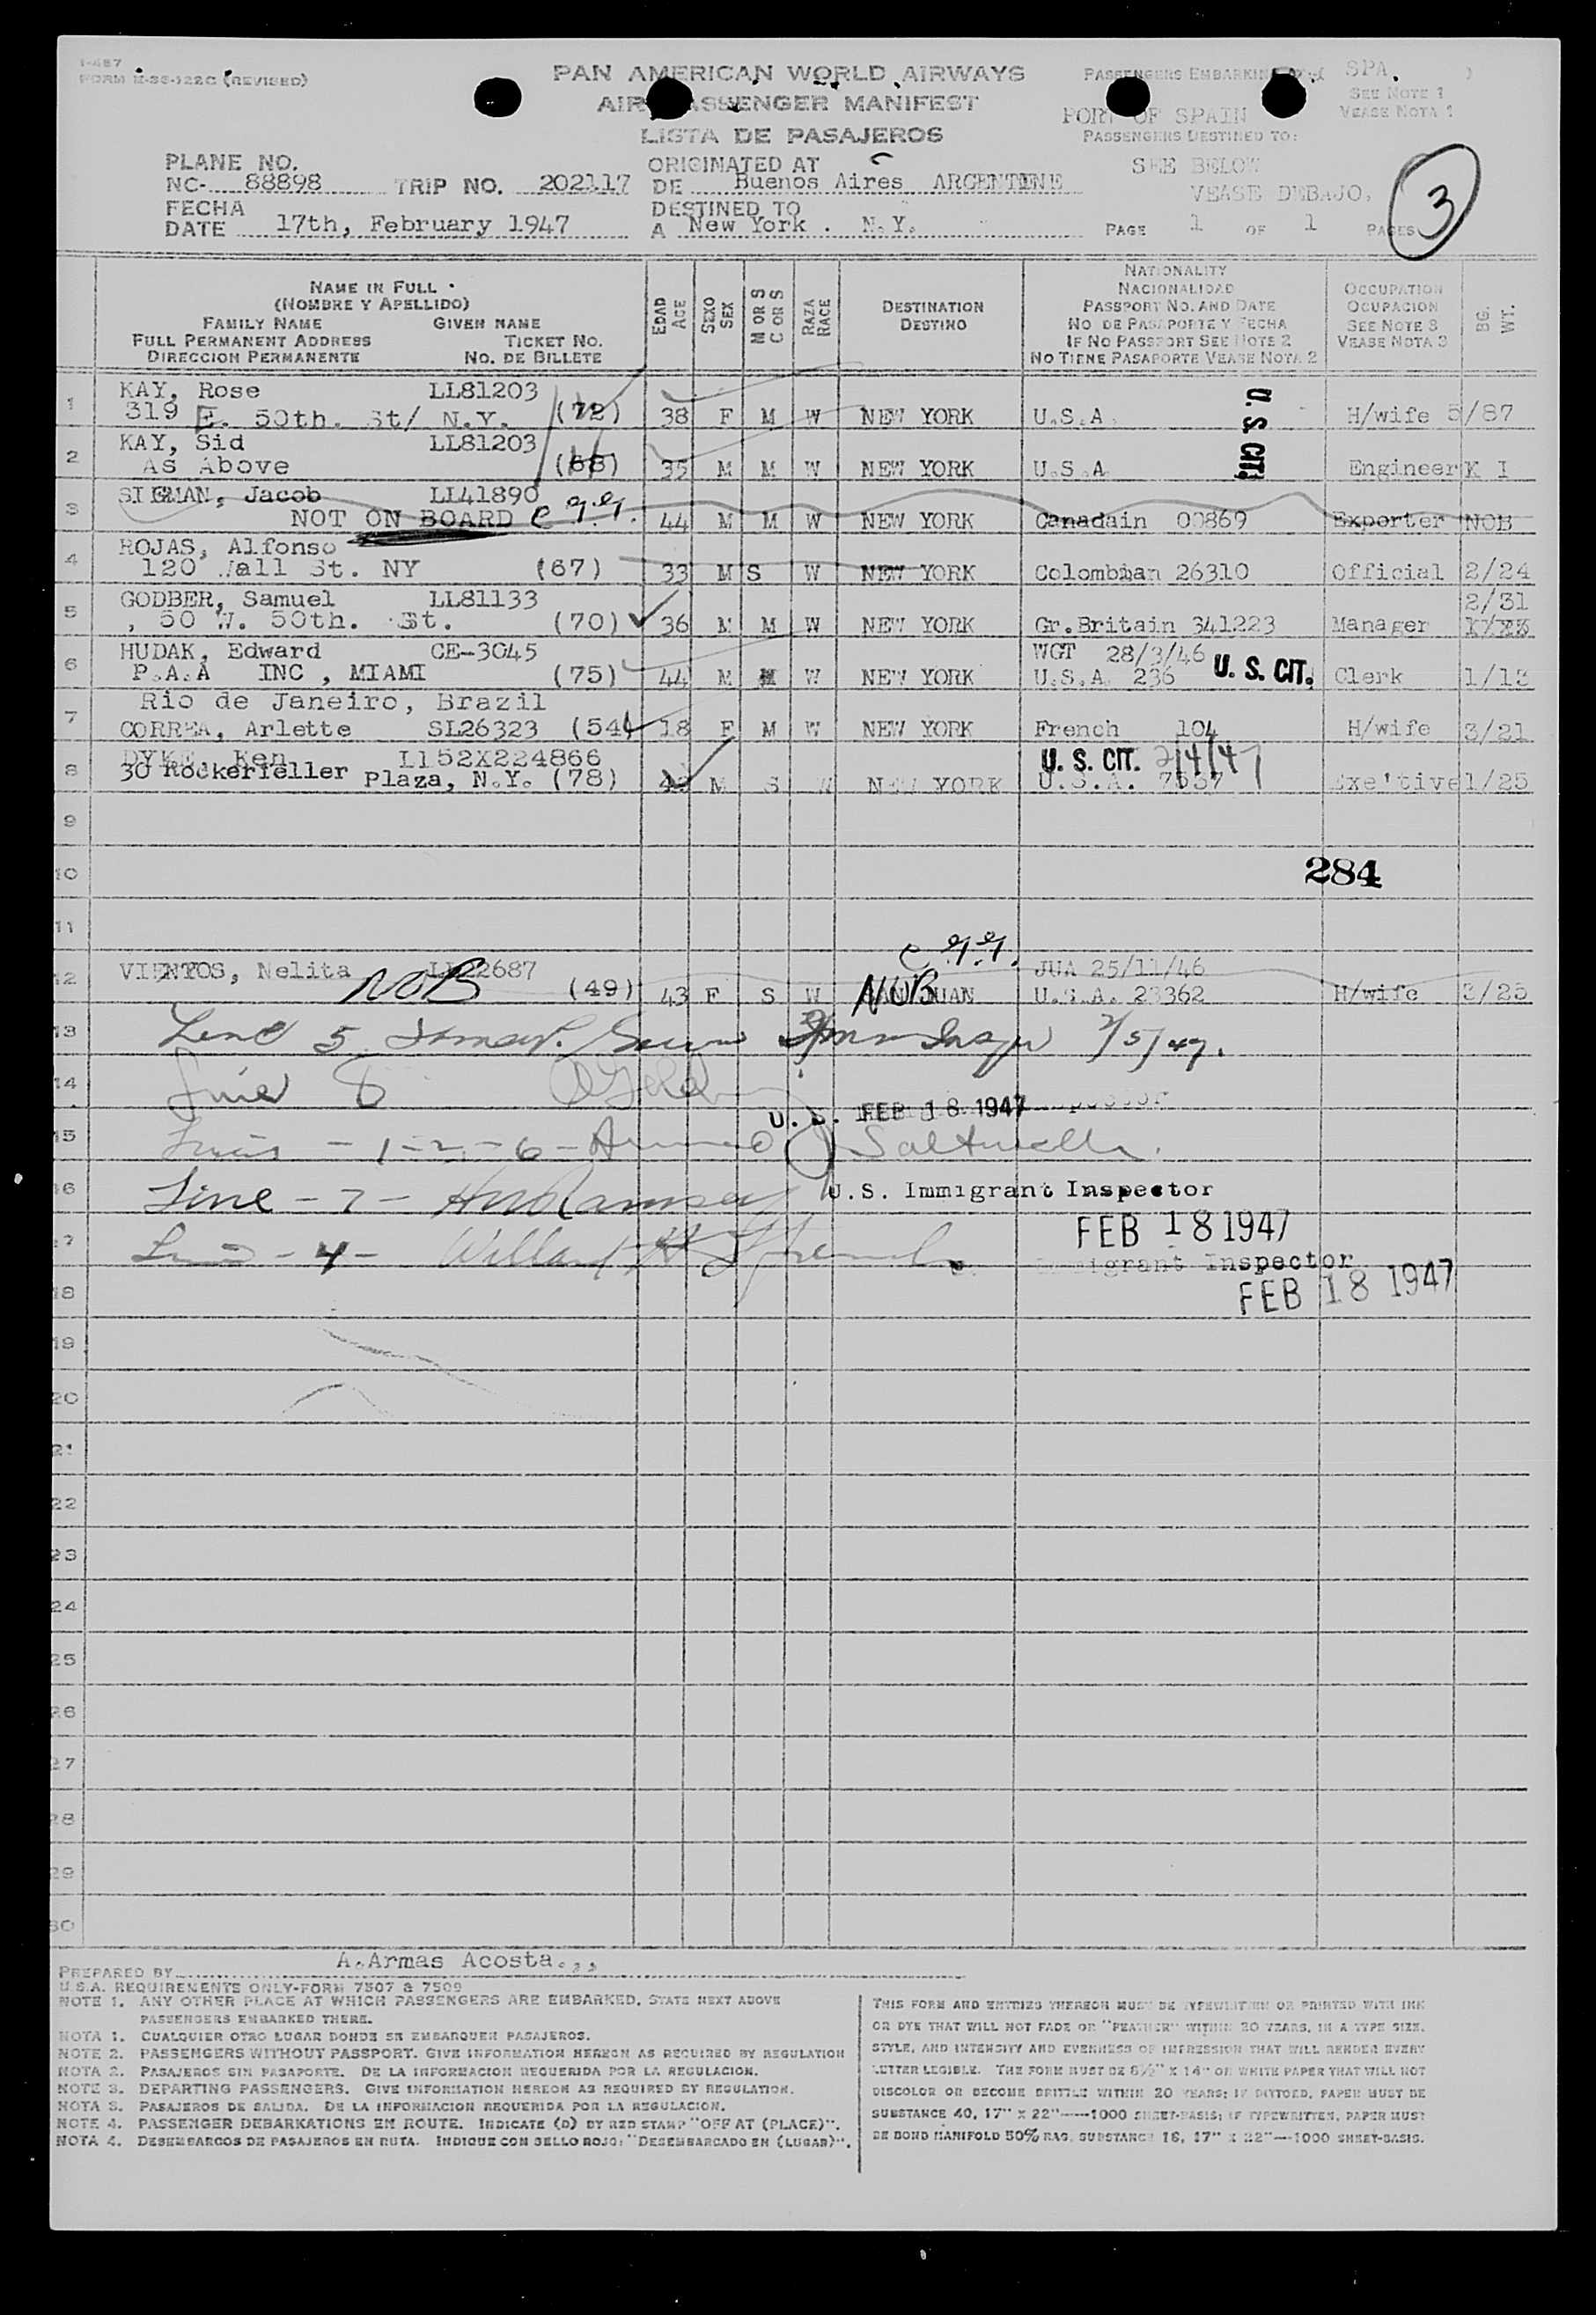 I-487
FORM M-33-122C (REVISED)
PAN AMERICAN WORLD AIRWAYS
AIR PASSENGER MANIFEST
LISTA DE PASAJEROS
PASSENGERS EMBARKING AT ( SPA. )
SEE NOTE 1
VEASE NOTA 1
PORT OF SPAIN
PASSENGERS DESTINED TO:
SEE BELOW
VEASE DEBAJO.
3
PLANE NO.
NC- 88898 TRIP NO. 202117
ORIGINATED AT
DE Buenos Aires ARGENTINE
FECHA
DATE 17th, February 1947
DESTINED TO
A New York . N.Y.
PAGE 1 OF 1 PAGES
NAME IN FULL
(NOMBRE Y APELLIDO)
FAMILY NAME GIVEN NAME
FULL PERMANENT ADDRESS TICKET NO.
DIRECCION PERMANENTE NO. DE BILLETE
EDAD AGE
SEXO SEX
M OR S C OR S
RAZA RACE
DESTINATION
DESTINO
NATIONALITY
NACIONALIDAD
PASSPORT NO. AND DATE
NO DE PASAPORTE Y FECHA
IF NO PASSPORT SEE NOTE 2
NO TIENE PASAPORTE VEASE NOTA 2
OCCUPATION
OCUPACION
SEE NOTE 3
VEASE NOTA 3
BG. WT.
1 KAY, Rose LL81203
319 E. 50th. St/ N.Y. (72) 38 F M W NEW YORK U.S.A. H/wife 5/87
U. S. CIT.
2 KAY, Sid LL81203
As Above (68) 35 M M W NEW YORK U.S.A. Engineer K I
3 SIGMAN, Jacob LL41890
NOT ON BOARD 44 M M W NEW YORK Canadain 00869 Exporter NOB
4 ROJAS, Alfonso
120 Wall St. NY (67) 33 M S W NEW YORK Colombian 26310 Official 2/24
5 GODBER, Samuel LL81133 2/31
, 50 W. 50th. St. (70) 36 M M W NEW YORK Gr.Britain 341223 Manager
6 HUDAK, Edward CE-3045 WGT 28/3/46
P.A.A INC , MIAMI (75) 44 M M W NEW YORK U.S.A. 236 U. S. CIT. Clerk 1/13
7 Rio de Janeiro, Brazil
CORREA, Arlette SL26323 (54) 18 F M W NEW YORK French 104 H/wife 3/21
8 DYKE, Ken L152X224866 U. S. CIT. 2/4/47
30 Rockerfeller Plaza, N.Y. (78) M S W NEW YORK U.S.A. 7537 Exe'tive 1/25
9
10 284
11
12 VIENTOS, Nelita LL22687 JUA 25/11/46
NOB (49) 43 F S W SAN JUAN NOB U.S.A. 23362 H/wife 3/25
13 Line 5 2/5/47.
14 Line 8
U. S. FEB 18 1947
15 Lines - 1 - 2 - 6 - Saltwell
16 Line - 7 - Ramsey U.S. Immigrant Inspector
FEB 18 1947
17 Line - 4 - Willard H Immigrant Inspector
FEB 18 1947
18
19
20
21
22
23
24
25
26
27
28
29
30
PREPARED BY A.Armas Acosta.,,
U.S.A. REQUIREMENTS ONLY-FORM 7507 & 7509
NOTE 1. ANY OTHER PLACE AT WHICH PASSENGERS ARE EMBARKED, STATE NEXT ABOVE
PASSENGERS EMBARKED THERE.
NOTA 1. CUALQUIER OTRO LUGAR DONDE SE EMBARQUEN PASAJEROS.
NOTE 2. PASSENGERS WITHOUT PASSPORT. GIVE INFORMATION HEREON AS REQUIRED BY REGULATION
NOTA 2. PASAJEROS SIN PASAPORTE. DE LA INFORMACION REQUERIDA POR LA REGULACION.
NOTE 3. DEPARTING PASSENGERS. GIVE INFORMATION HEREON AS REQUIRED BY REGULATION.
NOTA 3. PASAJEROS DE SALIDA. DE LA INFORMACION REQUERIDA POR LA REGULACION.
NOTE 4. PASSENGER DEBARKATIONS EN ROUTE. INDICATE (D) BY RED STAMP "OFF AT (PLACE)".
NOTA 4. DESEMBARCOS DE PASAJEROS EN RUTA. INDIQUE CON SELLO ROJO: "DESEMBARCADO EN (LUGAR)".
THIS FORM AND ENTRIES THEREON MUST BE TYPEWRITTEN OR PRINTED WITH INK
OR DYE THAT WILL NOT FADE OR "FEATHER" WITHIN 20 YEARS, IN A TYPE SIZE,
STYLE, AND INTENSITY AND EVENNESS OF IMPRESSION THAT WILL RENDER EVERY
LETTER LEGIBLE. THE FORM MUST BE 8½" X 14" ON WHITE PAPER THAT WILL NOT
DISCOLOR OR BECOME BRITTLE WITHIN 20 YEARS; IF DITTOED, PAPER MUST BE
SUBSTANCE 40, 17" X 22"—1000 SHEET-BASIS; IF TYPEWRITTEN, PAPER MUST
BE BOND MANIFOLD 50% RAG, SUBSTANCE 16, 17" X 22"—1000 SHEET-BASIS.